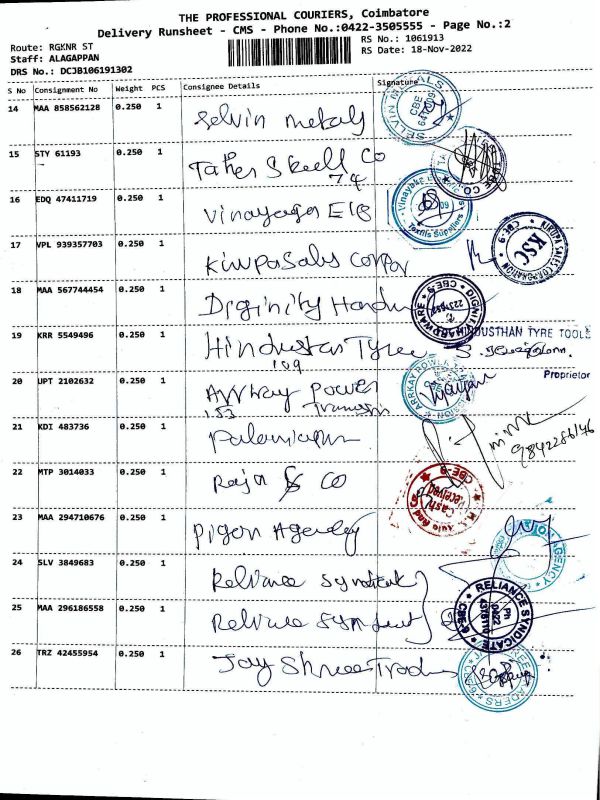 THE PROFESSIONAL COURIERS, Coimbatore
Delivery Runsheet - CMS - Phone No.:0422-3505555 - Page No.:2
Route: RGKNR ST
RS No.: 1061913
Staff: ALAGAPPAN
RS Date: 18-Nov-2022
DRS No.: DCJB106191302
S No Consignment No Weight PCS Consignee Details Signature
14 MAA 858562128 0.250 1 Selvin metals
15 STY 61193 0.250 1 Co
74
16 EDQ 47411719 0.250 1 Vinayaga
17 VPL 939357703 0.250 1
KIRUPA SALES CORPORATION CBE-9 KSC
18 MAA 567744454 0.250 1
CBE-9
19 KRR 5549496 0.250 1 Hindustan Tyre
109
HINDUSTHAN TYRE TOOLS
Proprietor
20 UPT 2102632 0.250 1 power
153
21 KDI 483736 0.250 1 Palaniappa
9842286146
22 MTP 3014033 0.250 1 Raja & Co
CBE-9
Cash
Received
23 MAA 294710676 0.250 1 Pigeon Agency
24 SLV 3849683 0.250 1 Reliance Syndicate
25 MAA 296186558 0.250 1 Reliance
RELIANCE SYNDICATE CBE-9 PH 0422
26 TRZ 42455954 0.250 1 Jay Shree Traders